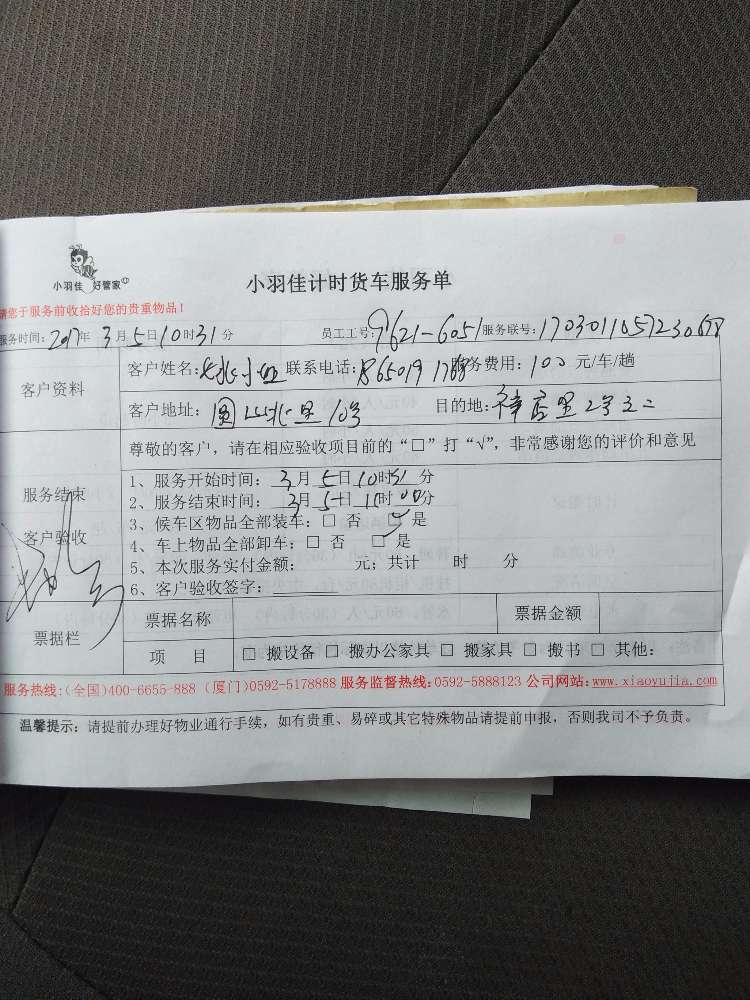 小羽佳 好管家
小羽佳计时货车服务单
请您于服务前收拾好您的贵重物品！
服务时间：2017年 3月5日10时31分 员工工号：9621-6051 服务联号：1703011057230678
客户资料
客户姓名： 小姐 联系电话：18650191788 服务费用：100 元/车/趟
客户地址：圆山北里10号 目的地： 里2号之二
尊敬的客户，请在相应验收项目前的“□”打“√”，非常感谢您的评价和意见
服务结束
客户验收
1、服务开始时间：3月5日10时31分
2、服务结束时间：3月5日11时00分
3、候车区物品全部装车：□ 否 □ 是
4、车上物品全部卸车：□ 否 □ 是
5、本次服务实付金额： 元；共计 时 分
6、客户验收签字：
票据栏
票据名称 票据金额
项 目 □ 搬设备 □ 搬办公家具 □ 搬家具 □ 搬书 □ 其他：
服务热线：(全国)400-6655-888 (厦门)0592-5178888 服务监督热线：0592-5888123 公司网站：www.xiaoyujia.com
温馨提示：请提前办理好物业通行手续，如有贵重、易碎或其它特殊物品请提前申报，否则我司不予负责。